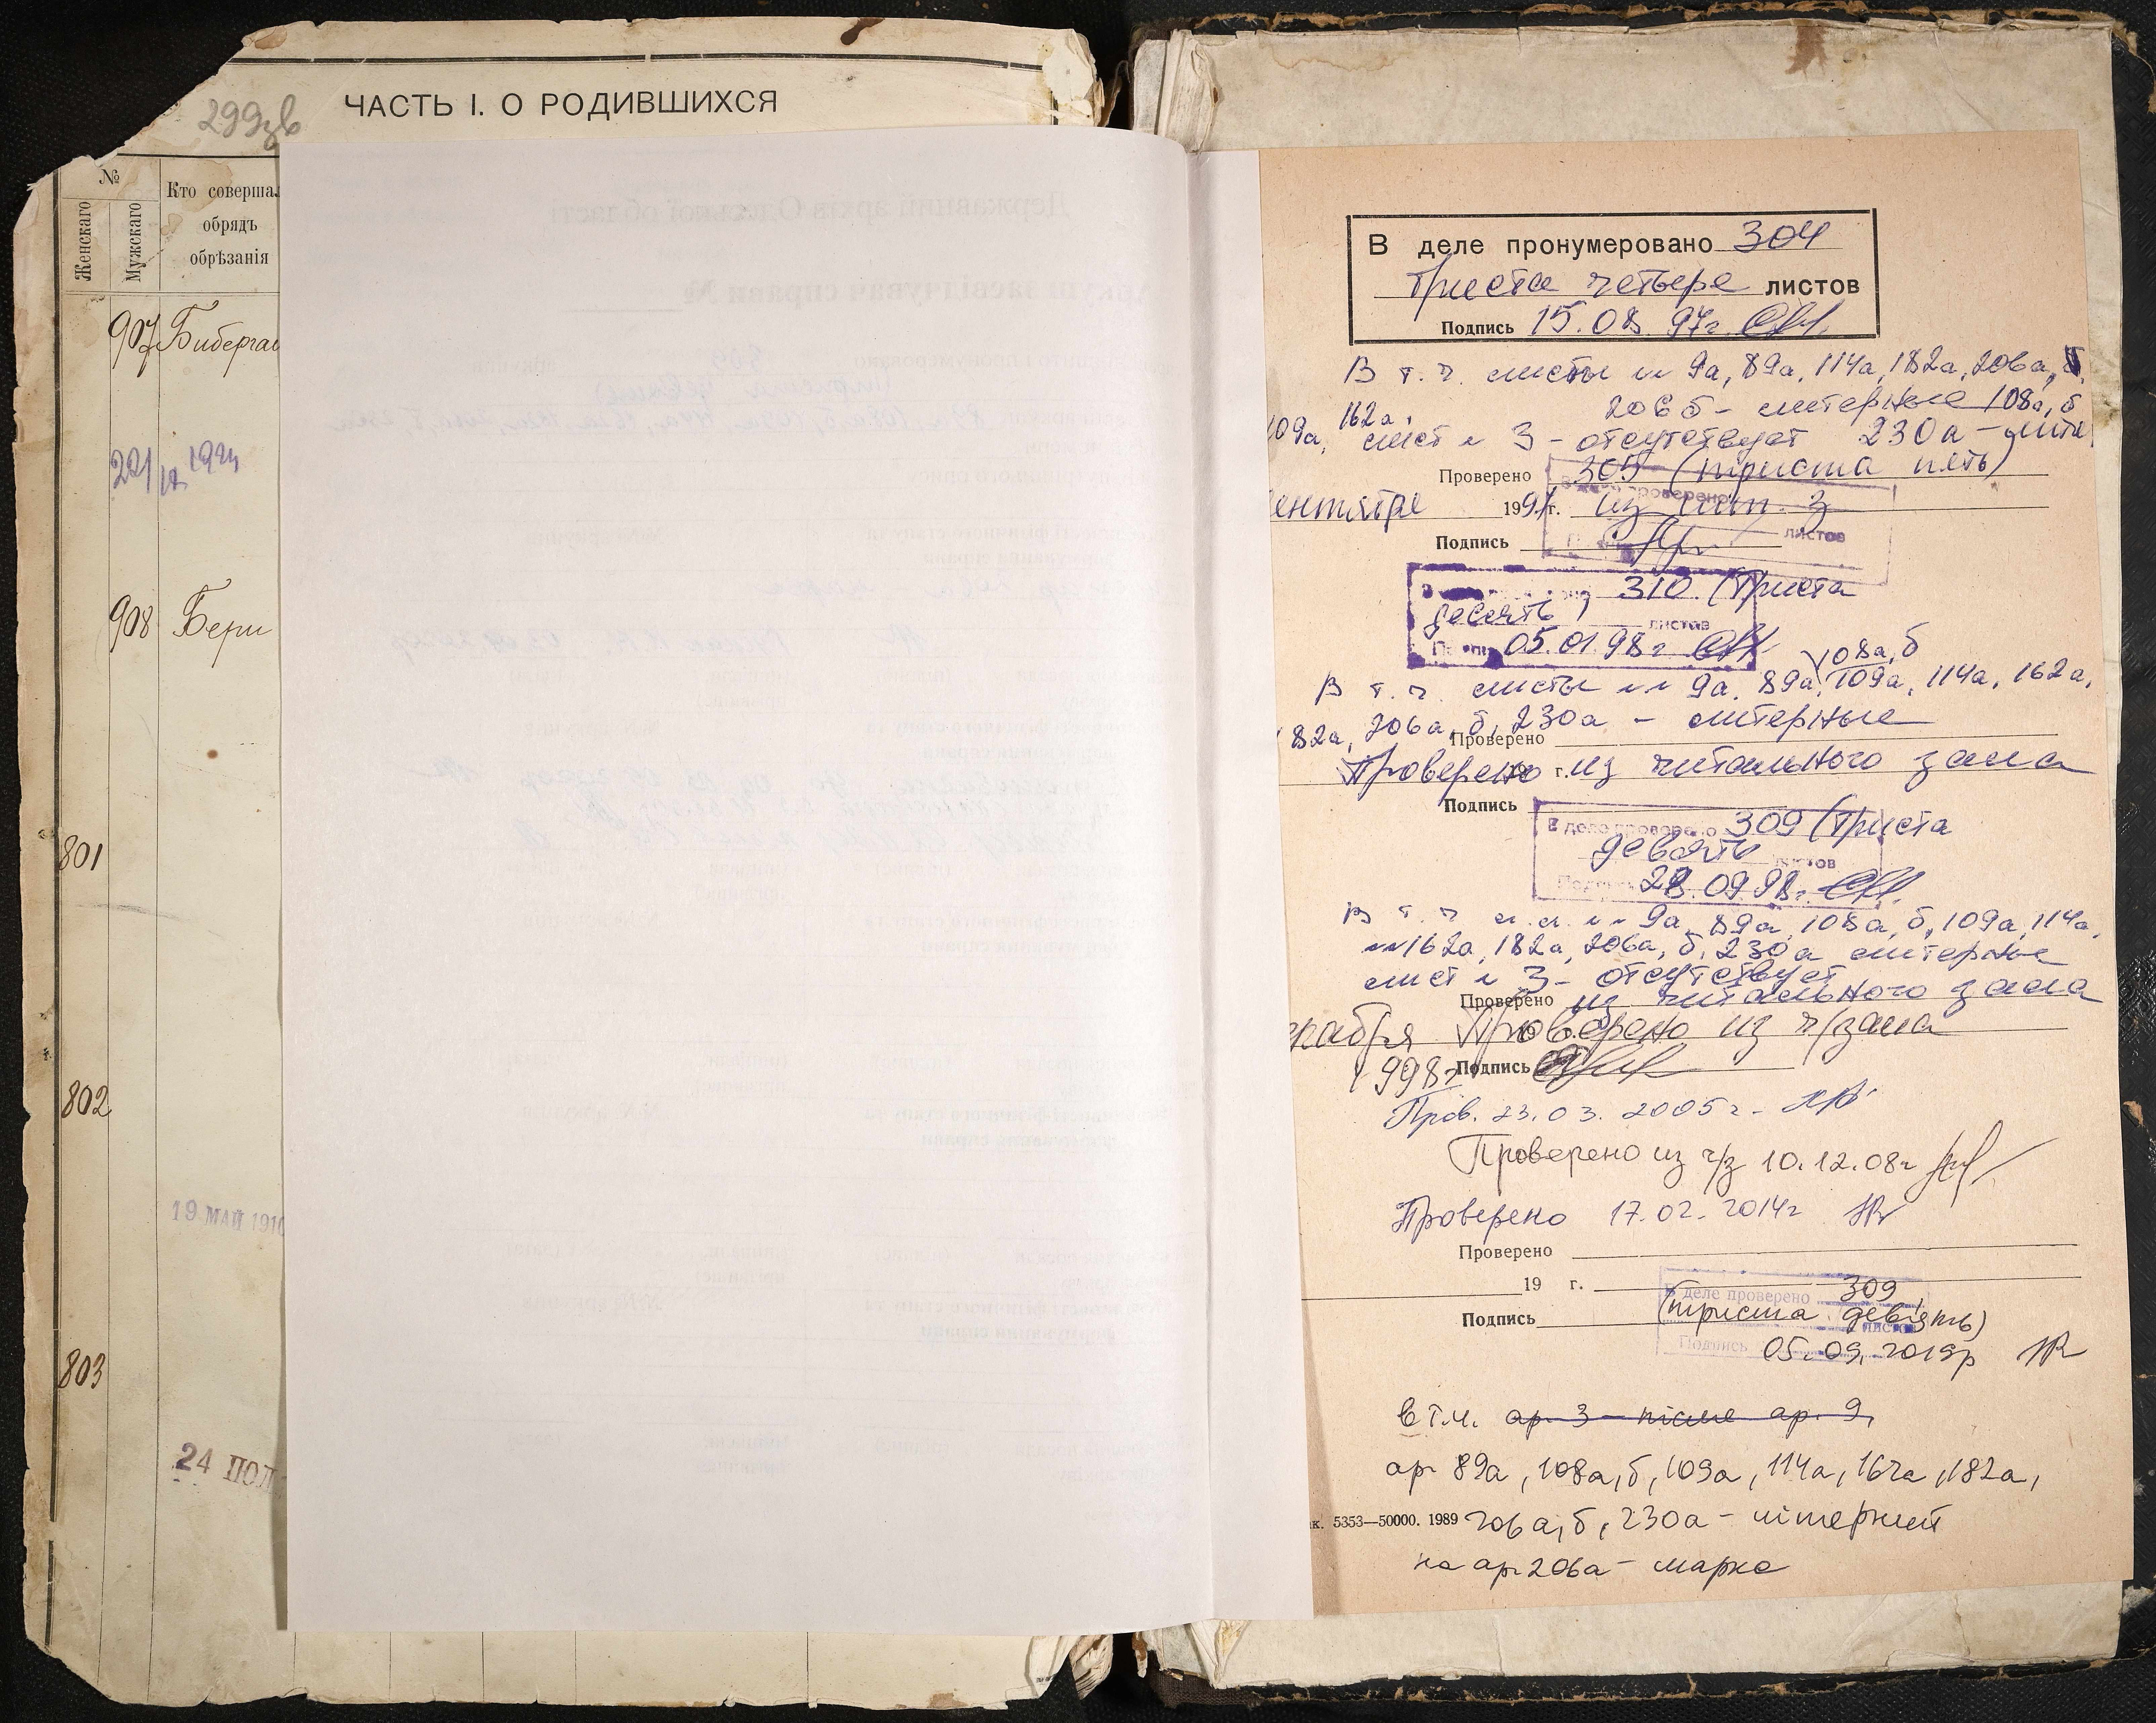 299зв
ЧАСТЬ I. О РОДИВШИХСЯ
№
Женскаго
Мужскаго
Кто совершал
обрядъ
обрѣзанія
907 Бибергал
908 Бери
801
802
19 МАЙ 1910
803
24 ПОЛ
В деле пронумеровано 304
Триста четыре листов
Подпись 15.08.97г.
В т.ч. листы №№ 9а, 89а, 114а, 182а, 206а,
162а, 206б - литерные 108а, б
109а, лист № 3 - отсутствует 230а - лите
Проверено 305 (триста пять)
ентября 1997г. из чит. з
Подпись листов
310. (Триста
десять) листов
05.01.98г
108а, б
В т.ч. листы №№ 9а, 89а, 109а, 114а, 162а,
182а, 206а, б, 230а - литерные
Проверено
Проверено 19 г. из читального зала
Подпись
В деле проверено 309 (Триста
девять листов
Подпись 28.09.98г.
В т.ч. л.л. №№ 9а, 89а, 108а, б, 109а, 114а,
162а, 182а, 206а, б, 230а литерные
лист № 3 - отсутствует
Проверено из читального зала
екабря Проверено из ч/зала
1998г Подпись
Пров. 23.03.2005г.
Проверено из ч/з 10.12.08г
Проверено 17.02.2014г
Проверено
19 г.
В деле проверено 309
(триста дев'ять)
листов
Подпись
Подпись 05.09.2019р
в т.ч. ар. 3 - після ар. 9,
ар 89а, 108а, б, 109а, 114а, 162а, 182а,
ак. 5353—50000. 1989 206а, б, 230а - літерний
на ар 206а - марка